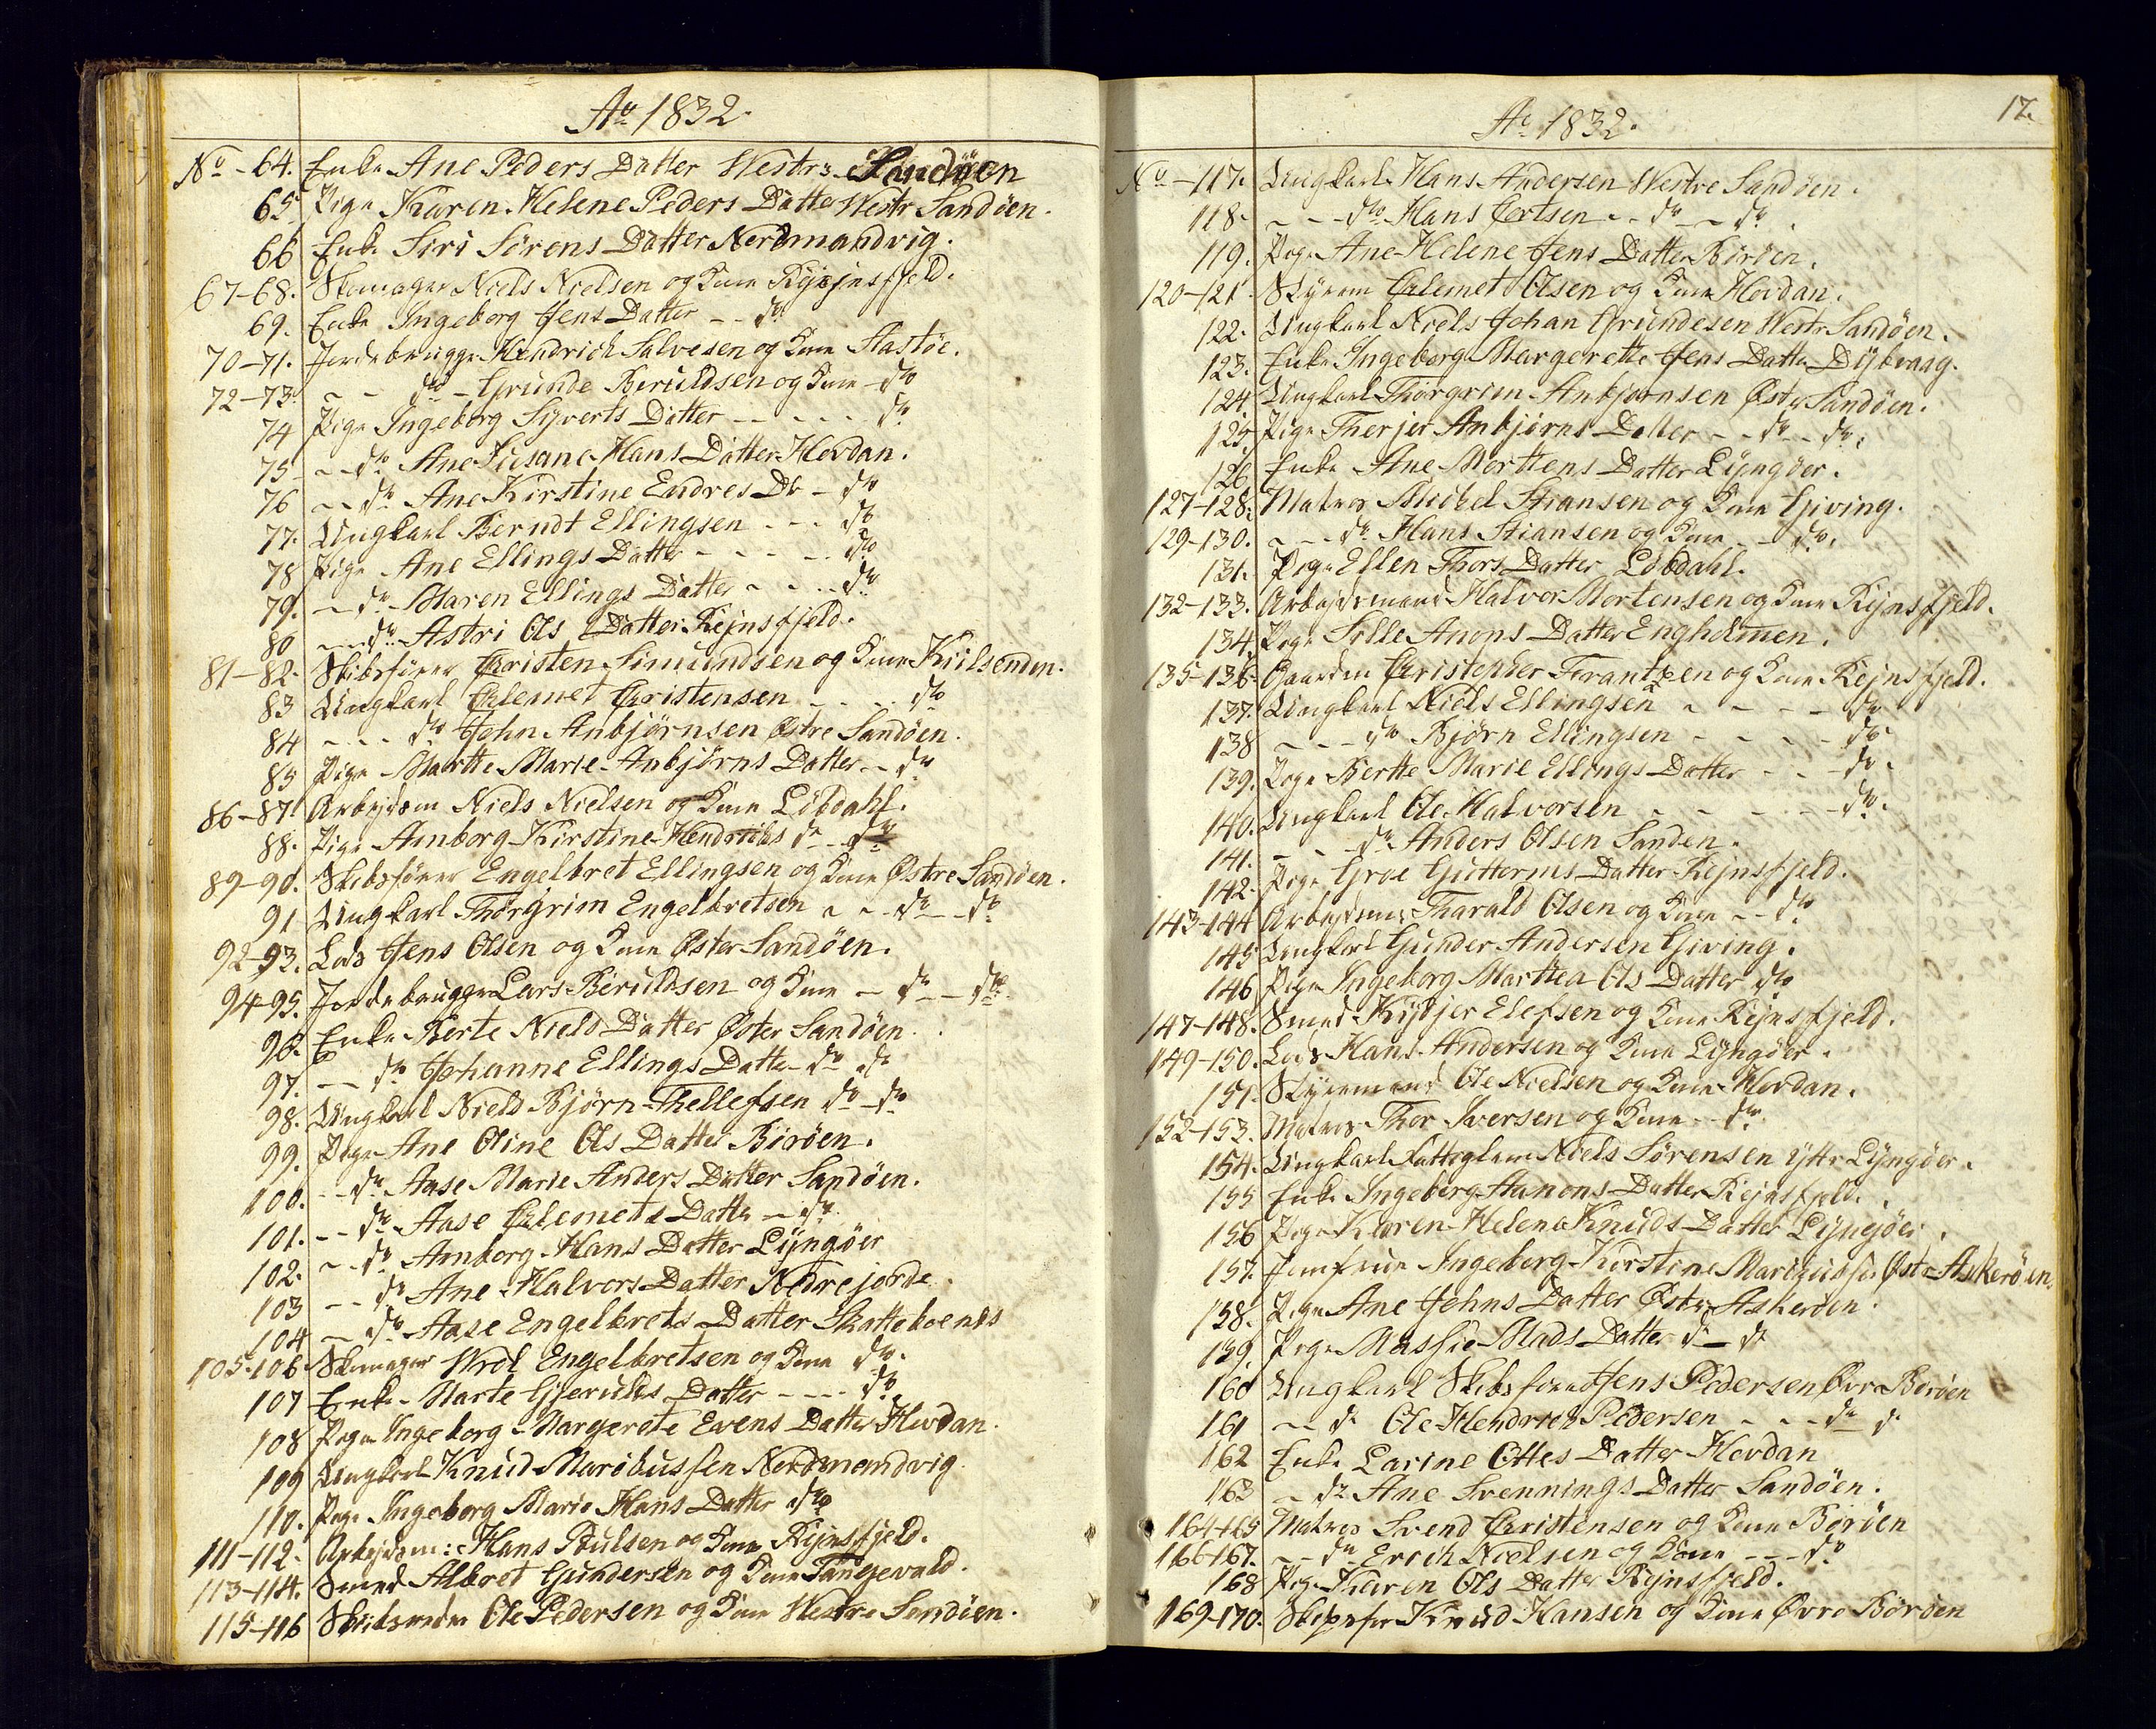 Ao 1832.
No - 64. Enke Ane Peders Datter Westre Sandöen
65 Pige Karen Helene Peders Datter Westr Sandöen.
66 Enke Siri Sörens Datter Nordmandvig.
67-68. Skomager Niels Nielsen og Kone Rejnsfjeld.
69. Enke Ingeborg Jens Datter - - do
70-71. Jordebrugger Hendrich Salvesen og Kone Aastöe.
72-73. - - do - Grunde Beruldsen og Kone - do
74 Pige Ingeborg Syverts Datter - - - - do
75 - - do Ane Susane Hans Datter Hovdan.
76 - - do Ane Kirstine Endres Dr - do
77. Ungkarl Berndt Ellingsen - - - do
78 Pige Ane Ellings Datter - - - - - do
79. - do - Maren Ellings Datter - - - do
80 - - do Astri Ols Datter Rejnsfjeld.
81-82. Skibsförer Christen Simundsen og Kone Kiilsenden.
83 Ungkarl Clemet Christensen - - - - do
84 - - - do John Anbjørnsen Østre Sandöen.
85 Pige Marthe Marie Anbjörns Datter - - do
86-87. Arbejdsm Niels Nielsen og Kone Löbdahl.
88. Pige Amborg Kirstine Hendrichs dr - do
89-90. Skibsförer Engelbret Ellingsen og Kone Østre Sandöen.
91 Ungkarl Thorgrim Engelbretsen - - do - do
92-93. Lods Jens Olsen og Kone Øster Sandöen.
94-95. Jordebrugger Lars Beruldsen og Kone - do - do
96. Enke Berte Niels Datter Øster Sandöen.
97. - - do Johanne Ellings Datter - do do
98. Ungkarl Niels Bjørn Thellefsen do - do
99. Pige Ane Oline Ols Datter Böröen.
100. - - do Aase Marie Anders Datter Sandöen.
101. - - do Aase Clemets Datter - do
102. - - do Amborg Hans Datter Lyngöer
103 - - do Ane Halvors Datter Nedrejorde.
104 - do Aase Engelbrets Datter
105-106 Skomager Wrol Engelbretsen og Kone do.
107 Enke Marte Gjerulds Datter - - - - do.
108 Pige Ingeborg Margerete Evens Datter Hovdan.
109 Ungkarl Knud Marcussen Nordmandvig
110. Pige Ingeborg Marie Hans Datter do
111-112. Arbejdsm: Hans Poulsen og Kone Rejnsfjeld.
113-114. Smed Albret Gundersen og Kone Tangevald.
115-116 Ole Pedersen og Kone Westre Sandöen.
17.
Ao 1832.
No - 117. Ungkarl Hans Andersen Westre Sandöen.
118. - - - do Hans Gertsen - - do - do.
119. Pige Ane Helene Jens Datter Böröen.
120-121. Styrem Clemet Olsen og Kone Hovdan.
122. Ungkarl Niels Johan Grundesen Westr Sandöen.
123. Enke Ingeborg Margerethe Jens Datter Dybvaag.
124. Ungkarl Thorgrim Anbjørnsen Øster Sandöen.
125 Pige Therjer Anbjörns Datter - - do - do.
126. Enke Ane Morthens Datter Lyngöer.
127-128. Matros Michel Stiansen og Kone Giving.
129-130. - - - do Hans Stiansen og Kone - - do.
131. Pige Ellen Thors Datter Löbdahl.
132-133. Arbejdsmand Halvor Mortensen og Kone Rejnsfjeld.
134. Pige Sille Anons Datter Engholmen.
135-136. Gaardm Christopher Frantzen og Kone Rejnsfjeld.
137. Ungkarl Niels Ellingsen - - - - do
138 - - - do Bjørn Ellingsen - - - - do
139. Pige Berthe Marie Ellings Datter - - - do.
140. Ungkarl Ole Halvorsen - - - - - do.
141. - - - do Anders Olsen Sanden.
142. Pige Groe Gutterms Datter Rejnsfjeld.
143-144 Arbejdsm Tharald Olsen og Kone - - do
145 Ungkarl Gunder Andersen Giving.
146 Pige Ingeborg Marthea Ols Datter do
147-148. Smed Elefsen og Kone Rejnsfjeld.
149-150. Lods Hans Andersen og Kone Lyngöer.
151. Styrmand Ole Nielsen og Kone Hovdan.
152-153. Matros Thor Iversen og Kone - do
154. Ungkarl Fattiglem Niels Sörensen Ytte Lyngöer.
155 Enke Ingeborg Aanons Datter Rejnsfjeld.
156 Pige Karen Helene Knuds Datter Lyngöer.
157. Jomfrue Ingeborg Kirstine Østr Askeröen.
158. Pige Ane Johns Datter Østr Askeröen.
159. Pige Massie Mads Datter do - do
160 Ungkarl Skibsförer Jens Pedersen Øvre Böröen
161 - - do Ole Hendrich Pedersen - - - do do
162 Enke Larine Ottes Datter Hovdan
163 - do Ane Svennings Datter Sandöen.
164-165 Matros Svend Christensen og Kone Böröen
166-167. - - do Erich Nielsen og Kone - - - do
168 Pige Karen Ols Datter Rejnsfjeld.
169-170. Knud Hansen og Kone Øvre Böröen